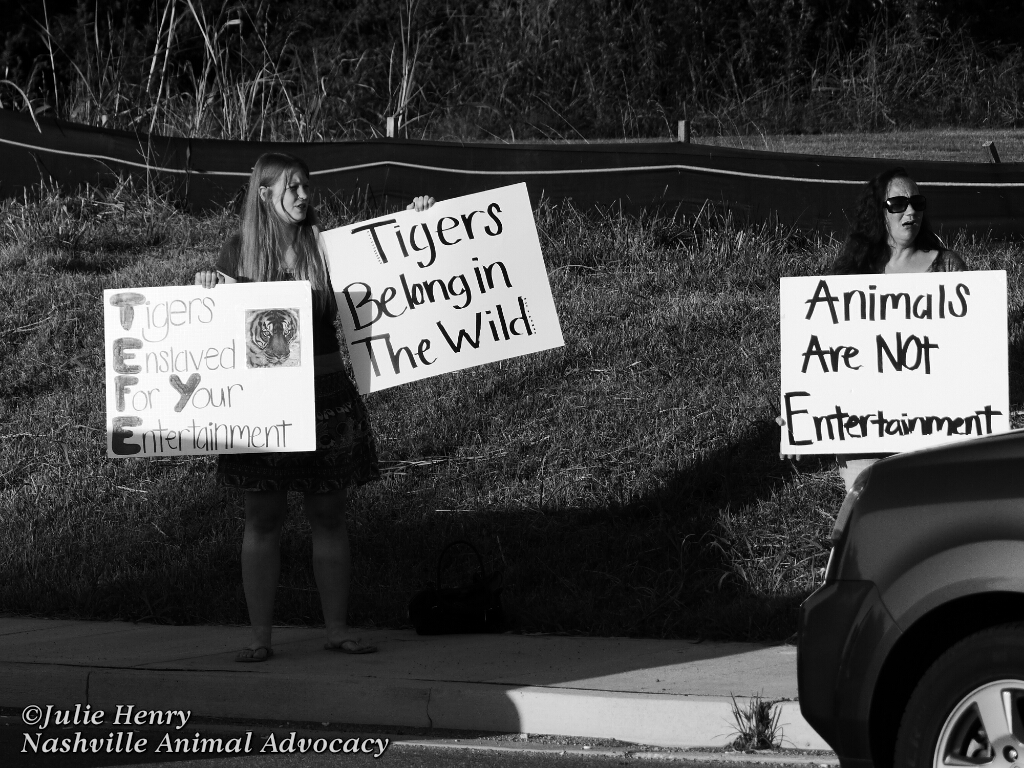 Tigers
Enslaved
For Your
Entertainment
Tigers
Belong in
The Wild
Animals
Are NOT
Entertainment
©Julie Henry
Nashville Animal Advocacy